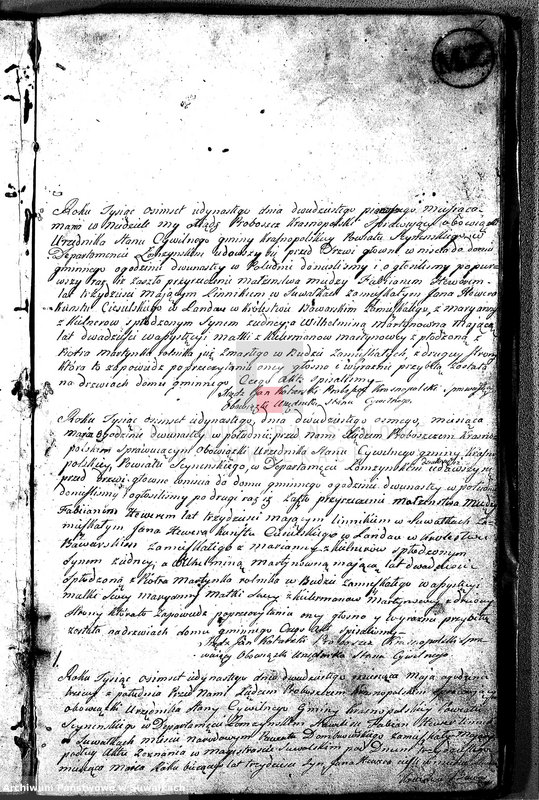 MZ.
Roku Tysiąc osimset jdynastego dnia dwudziestego pierwszego miesiąca
maja w Niedziele my Xiądz Proboszcz Krasnopolski Sprawujący obowiązki
Urzędnika Stanu Cywilnego gminy Krasnopolskiey Powiatu Seynenskiego w
Departamencie Łomzynskim udawszy się przed Drzwi głowne wniscia do domu
gminnego ogodzinie dwunasty w Południe donieslismy i ogłosilismy po pierw
wszy raz iż zaszło przyrzeczenie małzenstwa miedzy Fabianem Hewerem
lat trzydziesci maiącym Linnikiem w Suwałkach zamieszkałym Jana Hewera
kunstu Ciesielskiego w Landau w krolestwie Bawarskim Zamieszkałego, z maryanny
z kulnerow spłodzonym Synem zudney a Wilhelminą martynowną mającą
lat dwadziescia w apystencyi matki z kielermanow martynowey z płodzoną z
Piotra martynka rolnika juz Zmarłego w Budzie Zamieszkałych, z drugiey strony
ktora to zapowiedz po przeczytaniu oney głosno i wyraznie przybita została
na drzwiach domu gminnego, Czego Akt spisalismy
Xiądz Jan Kalwaski Proboszcz Krasnopolski sprawujący
Obowiązki Urzędnika Stanu Cywilnego.
Roku Tysiąc osimset jdynastego, dnia dwudziestego osmego, miesiąca
maja ogodzinie dwunasty w południe przed nami Xiędzem Proboszczem krasno
polskim Sprawującym Obowiązki Urzędnika Stanu Cywilnego gminy krasno
polskiey, Powiatu Seynenskiego, w Departamencie Łomzynskim udawszy się
przed Drzwi głowne wniscia do domu gminnego ogodzinie dwunasty w południe
donieslismy i ogłosilismy po drugi raz iż zaszło przyrzeczenie małzenstwa Miedzy
Fabianem Hewerem lat trzydziesci mającym linnikiem w Suwałkach za
mieszkałym Jana Hewera kunstu Ciesielskiego w Landau w krolestwie
Bawarskim zamieszkałego z marianny z kulnerow spłodzonym
Synem zudney, a Wilhelminą martynowną mającą lat dwadziescia
spłodzoną z Piotra Martynka rolnika w Budzie Zamieszkałego w apystencyi
matki Swey maryanny Matki Swey z kielermanow martynowey z drugiey
strony ktora to zapowiedz poprzeczytaniu oney głosno y wyraznie przybita
została nadrzwiach domu gminnego Czego Akt spisalismy
Xiądz Jan Kalwaski Proboszcz Krasnopolski Spra
wujący Obowiązki Urzędnika Stanu Cywilnego
1.
Roku Tysiąc osimset jdynastego dnia dwudziestego miesiąca Maja ogodzinie
trzeciey z południa Przed Nami Xiędzem Proboszczem krasnopolskim Sprawującym
obowiązki Urzędnika Stanu Cywilnego Gminy krasnopolskiey Powiatu
Seynenskiego w Departamencie Łomzynskim Stawił się Fabian Hewer linnik
w Suwałkach miescie narodowym Powiatu Dombrowskiego zamieszkały mający
podług Aktu Zeznania w magistracie Suwalskim pod Dniem trzydziestego
miesiąca marca Roku biezącego lat trzydziesci syn Jana Hewera
Archiwum Państwowe w Suwałkach